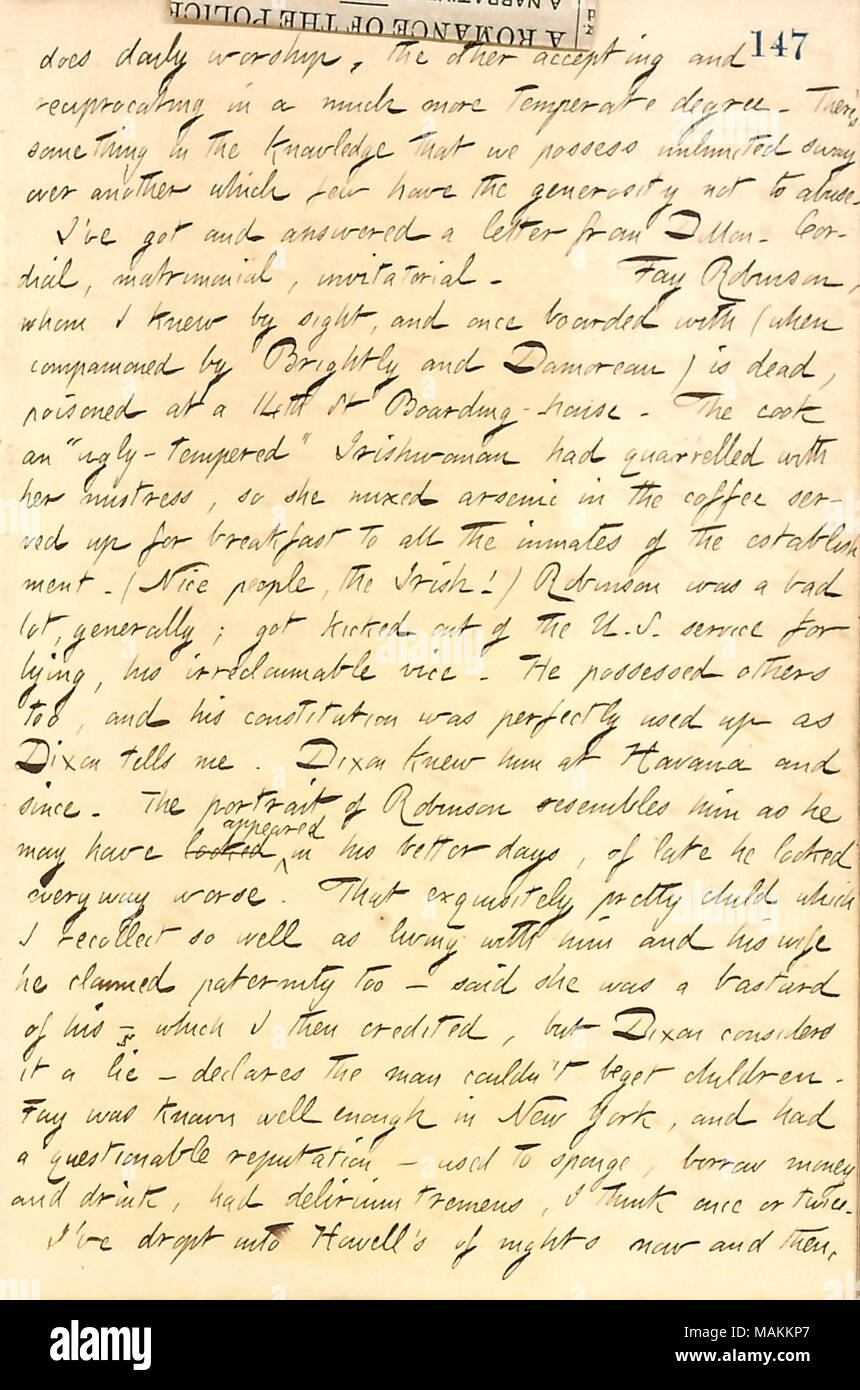 A ROMANCE OF THE POLICE
A NARRATIVE
147
does daily worship, the other accepting and
reciprocating in a much more temperate degree. There's
something in the knowledge that we possess unlimited sway
over another which few have the generosity not to abuse.
I've got and answered a letter from Dillon. Cor-
dial, matrimonial, invitatorial. Fay Robinson,
whom I knew by sight, and once boarded with (when
companioned by Brightly and Damoreau) is dead,
poisoned at a 14th St Boarding-house. The cook
an "ugly-tempered" Irishwoman had quarrelled with
her mistress, so she mixed arsenic in the coffee ser-
ved up for breakfast to all the inmates of the establish
ment. (Nice people, the Irish!) Robinson was a bad
lot, generally; got kicked out of the U.S. service for
lying, his irreclaimable vice. He possessed others
too, and his constitution was perfectly used up as
Dixon tells me. Dixon knew him at Havana and
since. The portrait of Robinson resembles him as he
may have looked appeared in his better days, of late he looked
everyway worse. That exquisitely pretty child which
I recollect so well as living with him and his wife
he claimed paternity too — said she was a bastard
of his — which I then credited, but Dixon considers
it a lie — declares the man couldn't beget children.
Fay was known well enough in New York, and had
a questionable reputation — used to sponge, borrow money
and drink, had delirium tremens, I think once or twice.
I've dropt into Howell's of nights now and then,
alamy
Image ID: MAKKP7
www.alamy.com